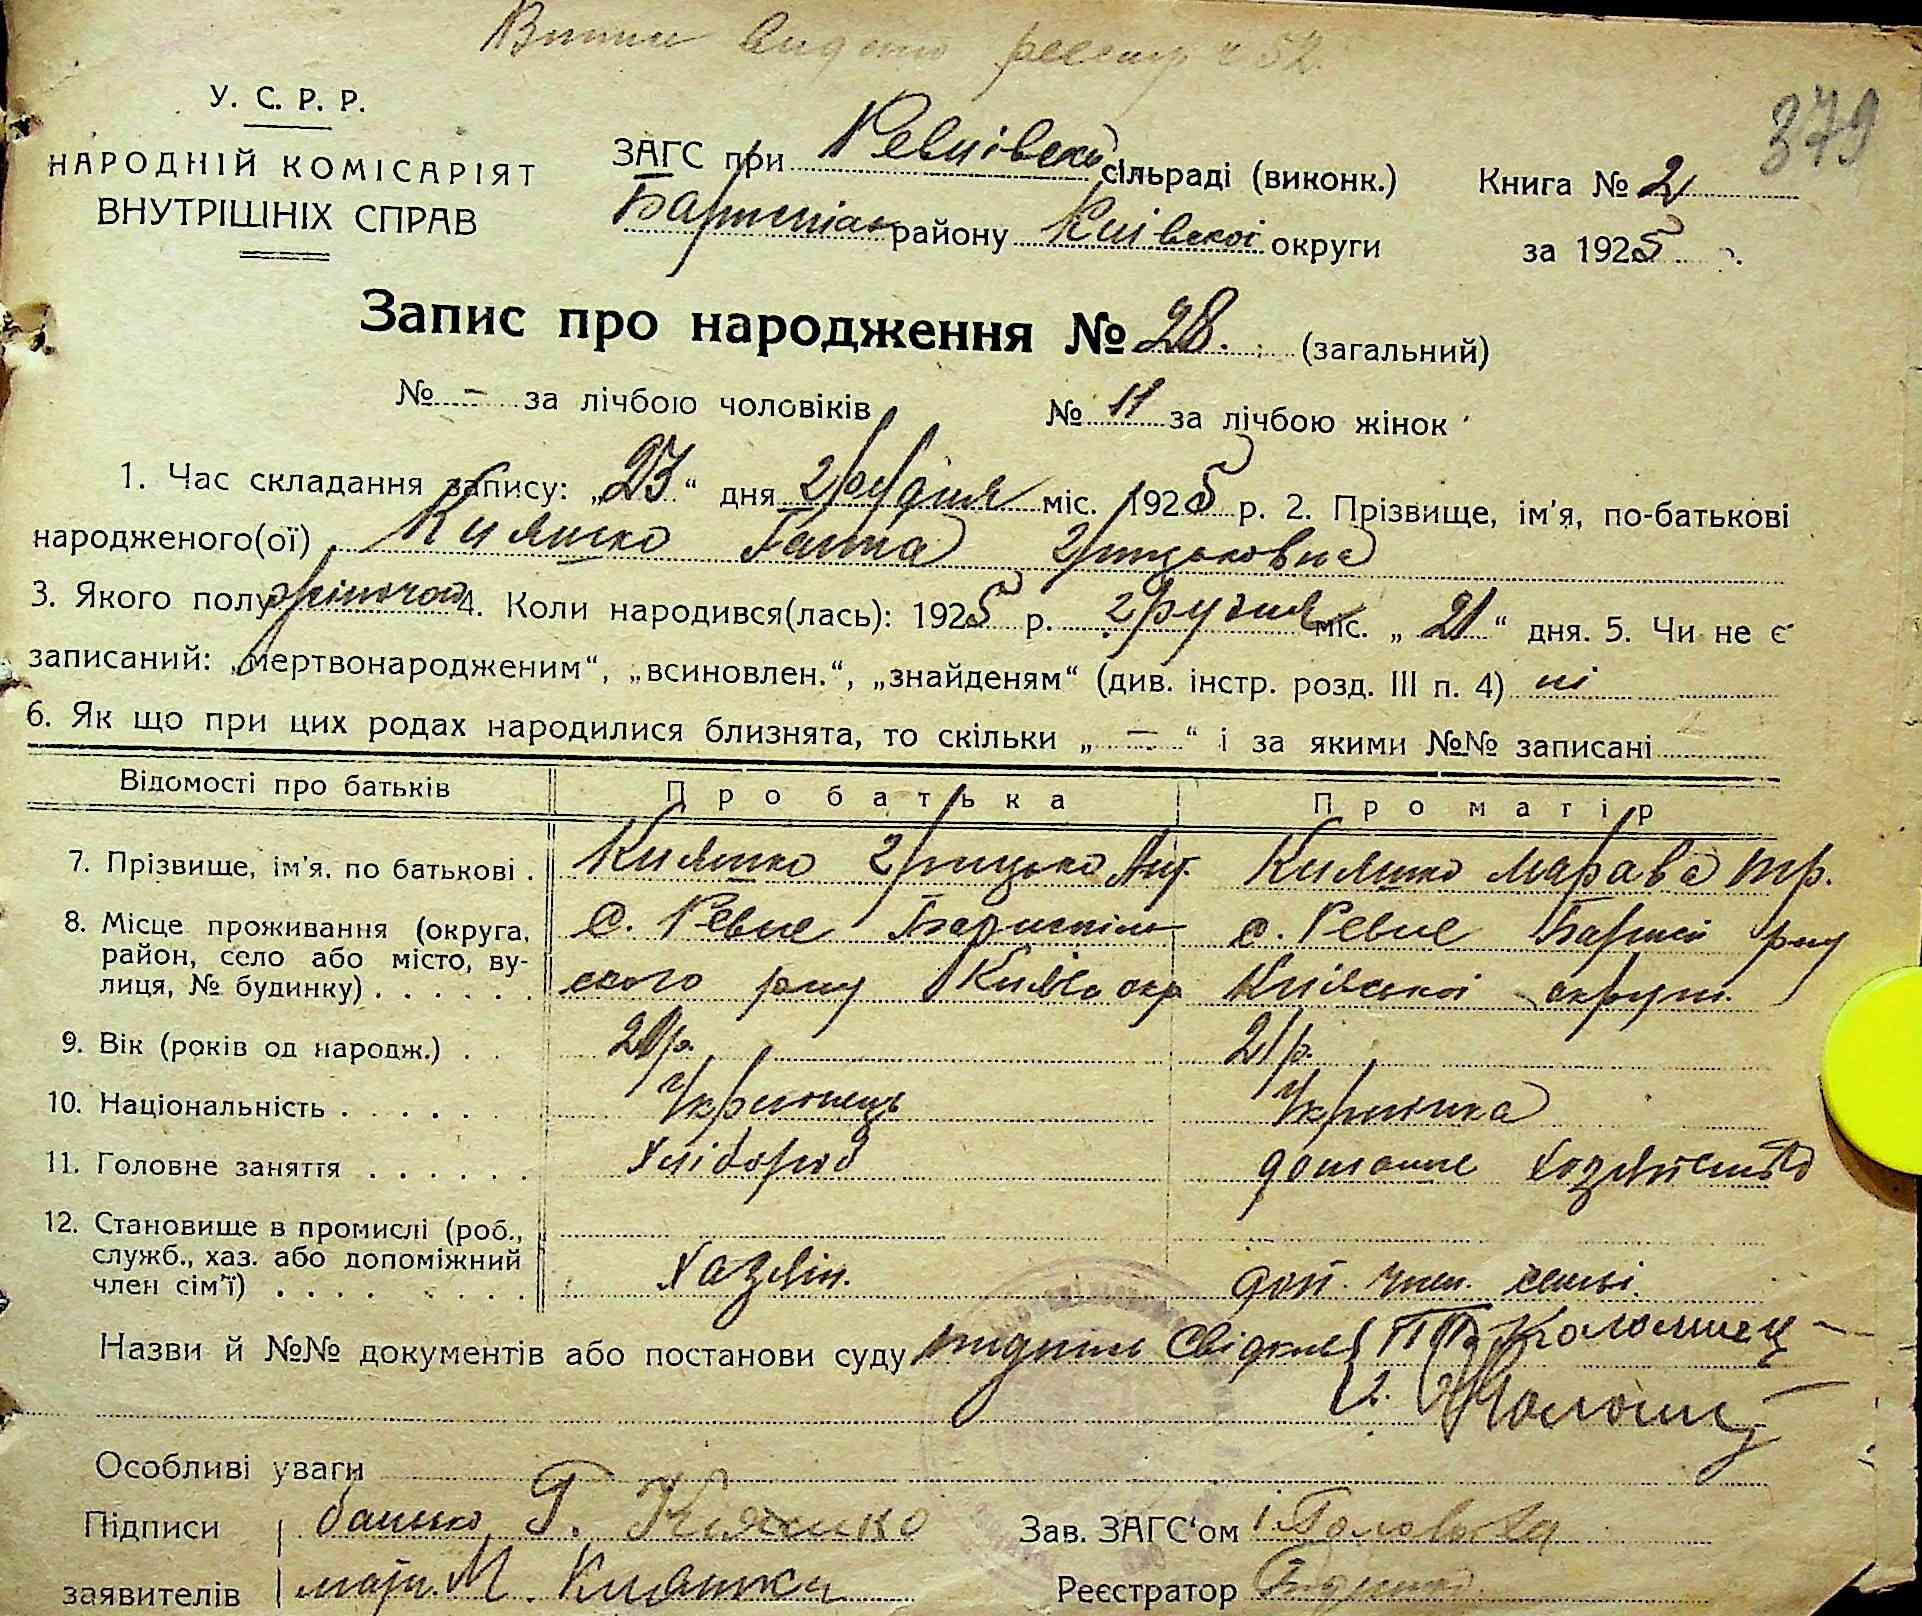 видано реєстр 52.
379
У. С. Р. Р.
НАРОДНІЙ КОМІСАРІЯТ
ВНУТРІШНІХ СПРАВ
ЗАГС при Ревнівскі сільраді (виконк.) Книга № 2
району Київскої округи за 1925 р.
Запис про народження № 28. (загальний)
№ - за лічбою чоловіків № 11 за лічбою жінок
1. Час складання запису: „23" дня Грудня міс. 1925 р. 2. Прізвище, ім'я, по-батькові
народженого(ої) Кияшко Ганна Грицьковна
3. Якого полу жіночой 4. Коли народився(лась): 1925 р. Грудня міс. „21" дня. 5. Чи не є
записаний: „мертвонародженим", „всиновлен.", „знайденям" (див. інстр. розд. III п. 4) ні
6. Як що при цих родах народилися близнята, то скільки „ - " і за якими №№ записані
Відомості про батьків Про батька Про матір
7. Прізвище, ім'я. по батькові . Кияшко Грицько Ант. Кияшко Марава Тр.
8. Місце проживання (округа, с. Ревне Бориспіль с. Ревне рну
район, село або місто, ву- ского рну Київс окр Київської округи.
лиця, № будинку) . . . . . .
9. Вік (років од народж.) . . р. 21 р.
10. Національність . . . . . . Українець Українка
11. Головне заняття . . . . . . Хлібороб домашне хозяйство
12. Становище в промислі (роб.,
служб., хаз. або допоміжний Хазяін. доп. член. семьі.
член сім'ї) . . . . . . . . .
Назви й №№ документів або постанови суду Свідки Коломиец
2.
Особливі уваги
Підписи батько Г. Кіяшко Зав. ЗАГС'ом Головača
заявителів мати. М. Кияшко Реєстратор